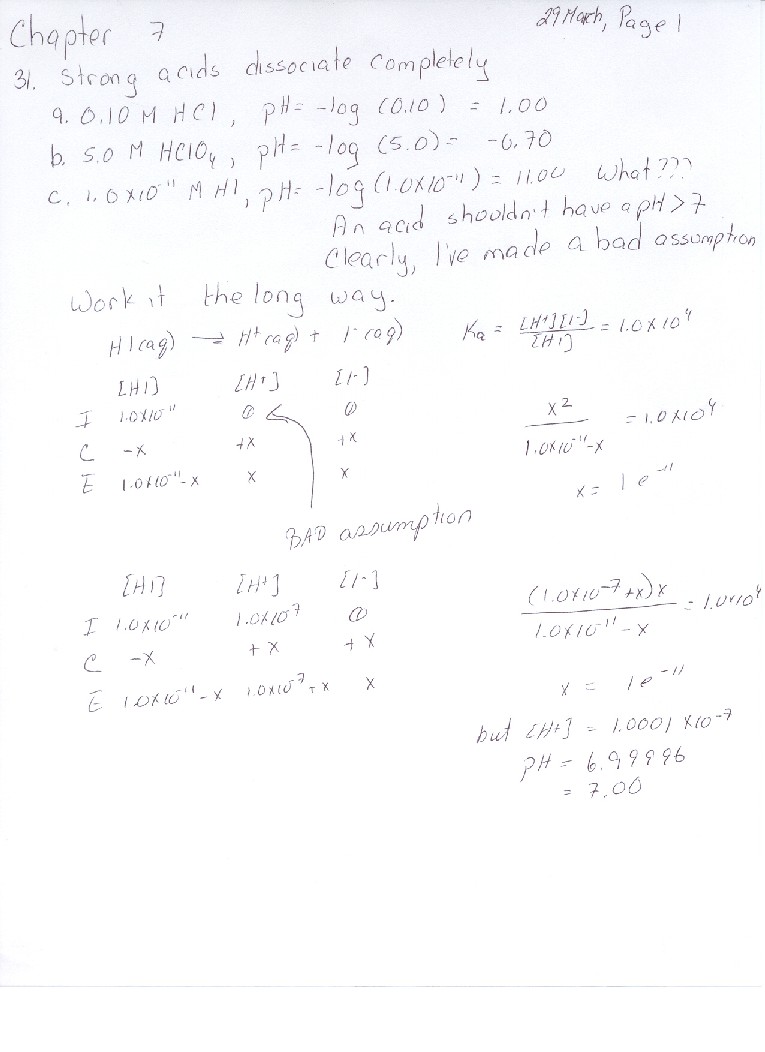 29 March, Page 1
Chapter 7
31. Strong acids dissociate completely
a. 0.10 M HCl, pH = -log (0.10) = 1.00
b. 5.0 M HClO₄, pH = -log (5.0) = -0.70
c. 1.0x10⁻¹¹ M HI, pH = -log (1.0x10⁻¹¹) = 11.00 What???
An acid shouldn't have a pH > 7
Clearly, I've made a bad assumption
Work it the long way.
HI(aq) → H⁺(aq) + I⁻(aq) Ka = [H⁺][I⁻]/[HI] = 1.0x10⁴
[HI] [H⁺] [I⁻]
I 1.0x10⁻¹¹ 0 0 x²/(1.0x10⁻¹¹-x) = 1.0x10⁴
C -x +x +x
E 1.0x10⁻¹¹-x x x x = 1e⁻¹¹
BAD assumption
[HI] [H⁺] [I⁻]
I 1.0x10⁻¹¹ 1.0x10⁻⁷ 0 (1.0x10⁻⁷+x)x/(1.0x10⁻¹¹-x) = 1.0x10⁴
C -x +x +x
E 1.0x10⁻¹¹-x 1.0x10⁻⁷+x x x = 1e⁻¹¹
but [H+] = 1.0001 x10⁻⁷
pH = 6.99996
= 7.00